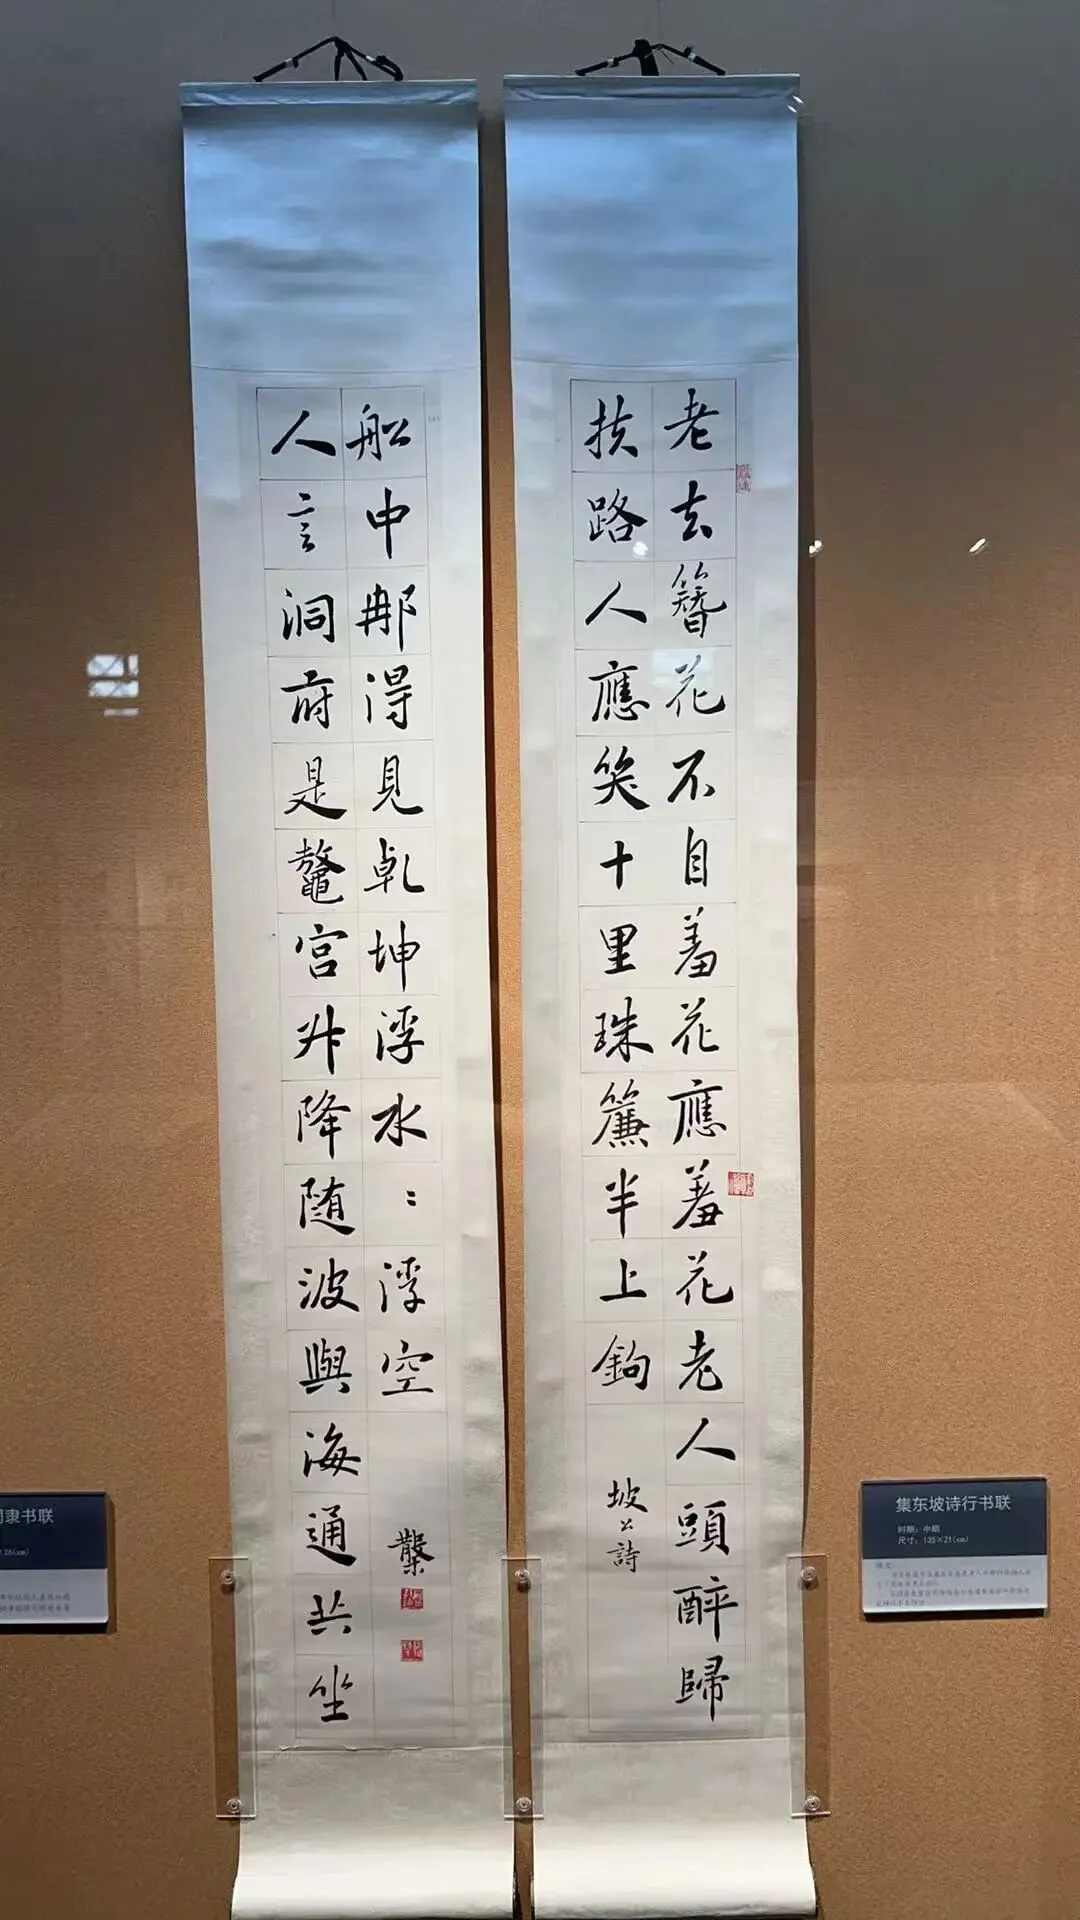 老去簪花不自羞花應羞花老人頭醉歸
扶路人應笑十里珠簾半上鉤
坡公詩
舩中那得見乾坤浮水〻浮空
人言洞府是鼇宮升降随波與海通共坐
集东坡诗行书联
时期：中期
尺寸：135×21(cm)
隶书联
26(cm)